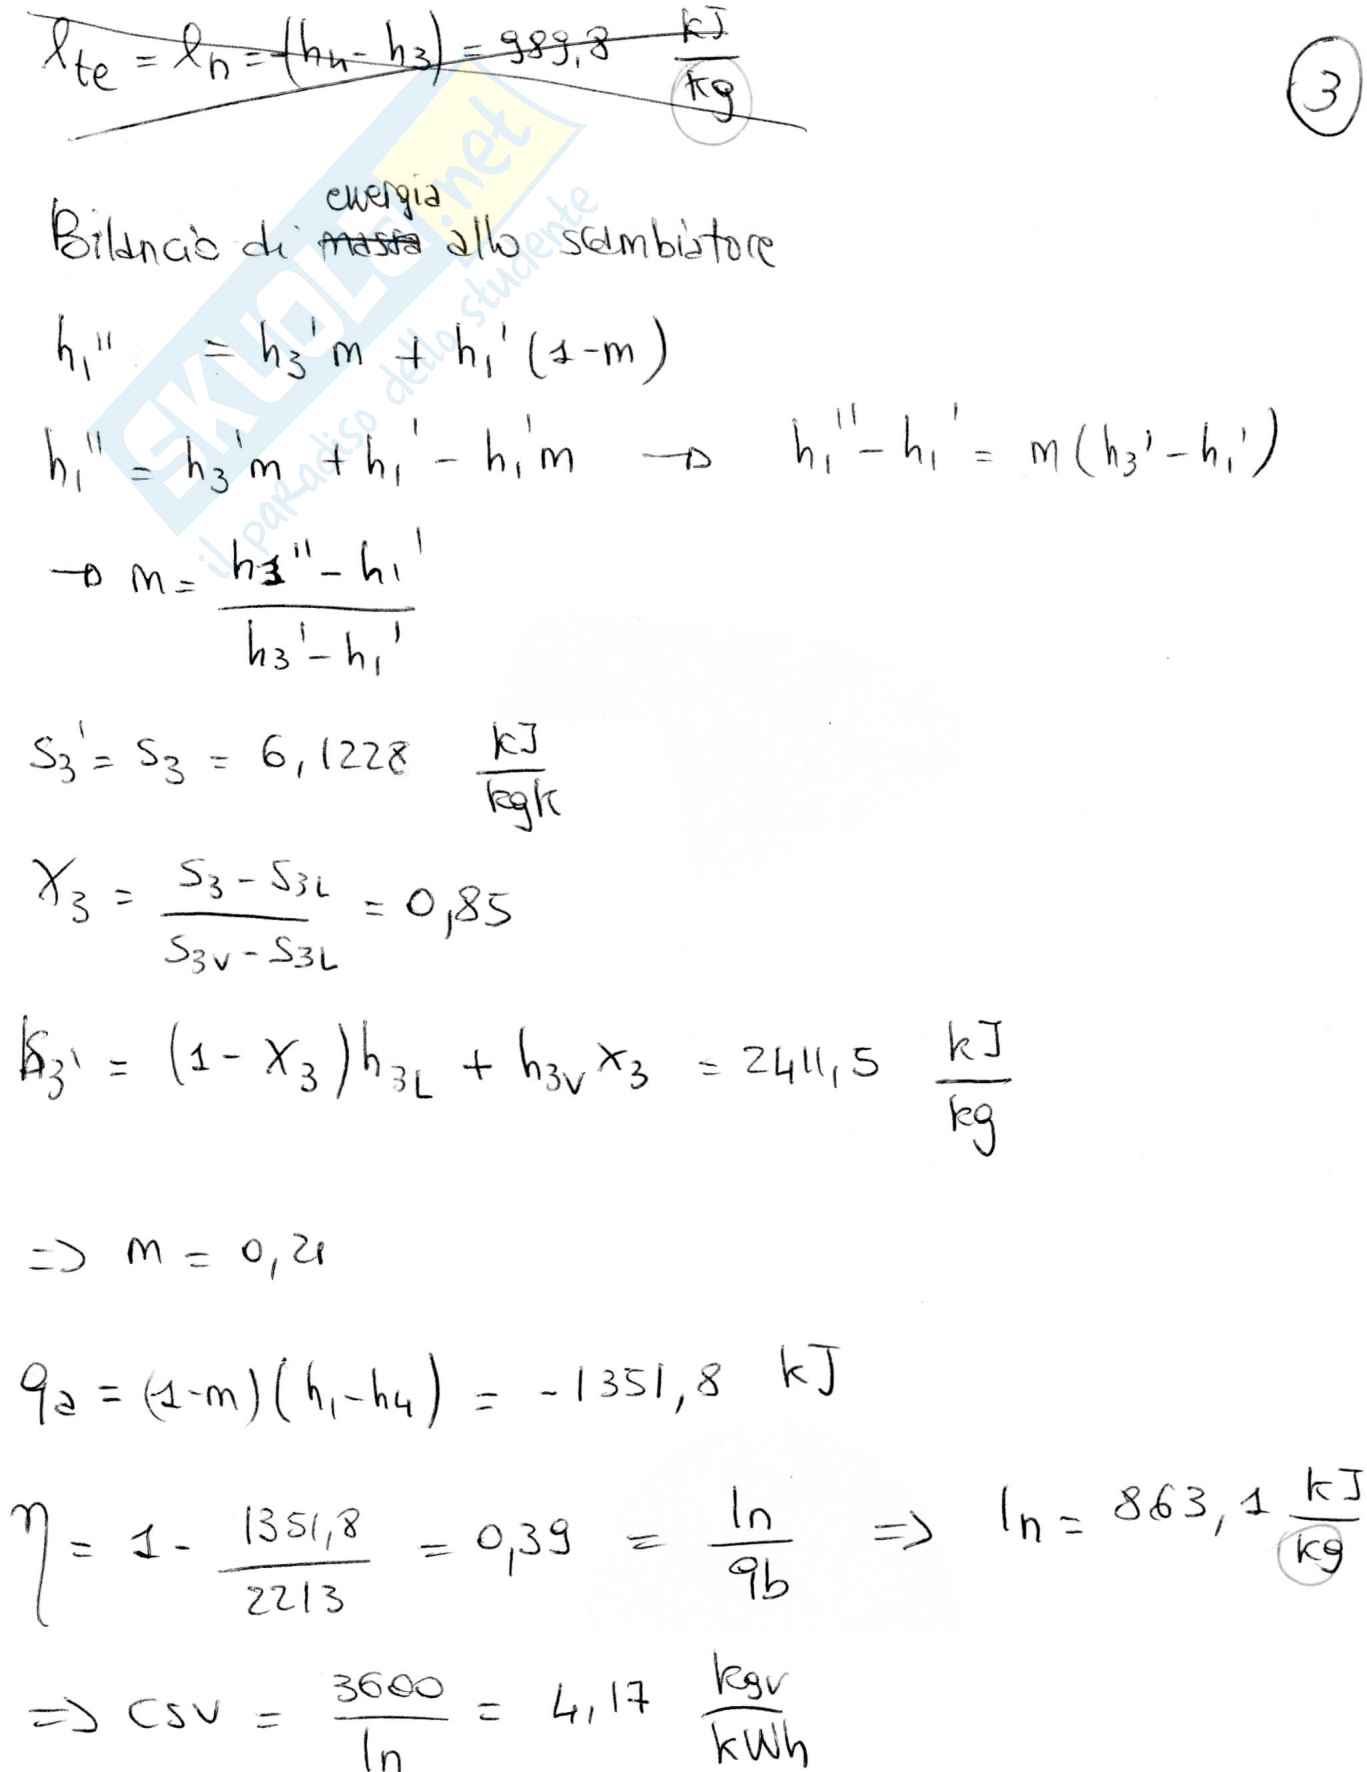 ℓte = ℓn = (h4 - h3) = 989,8 kJ/kg
3
energia
Bilancio di massa allo scambiatore
h1'' = h3'm + h1'(1-m)
h1'' = h3'm + h1' - h1'm → h1'' - h1' = m(h3' - h1')
→ m = (h1'' - h1')/(h3' - h1')
S3' = S3 = 6,1228 kJ/kgK
X3 = (S3 - S3L)/(S3V - S3L) = 0,85
h3' = (1 - X3)h3L + h3V X3 = 2411,5 kJ/kg
=> m = 0,21
qa = (1-m)(h1-h4) = -1351,8 kJ
η = 1 - 1351,8/2213 = 0,39 = ln/qb => ln = 863,1 kJ/kg
=> CSV = 3600/ln = 4,17 kgv/kWh
SKUOLA.net
il paradiso dello studente